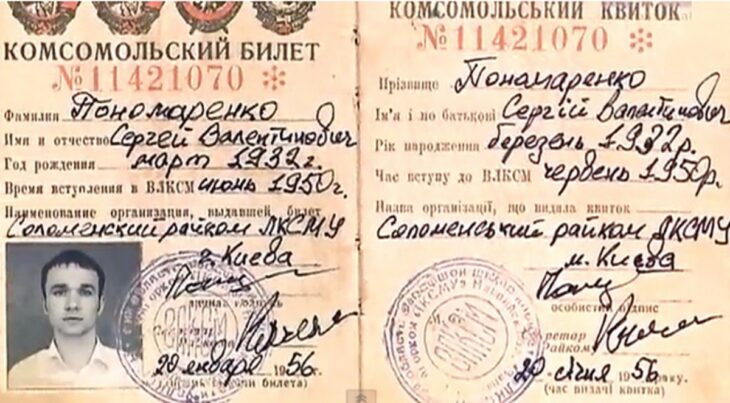 КОМСОМОЛЬСКИЙ БИЛЕТ
№11421070
Фамилия Пономаренко
Имя и отчество Сергей Валентинович
Год рождения март 1932 г.
Время вступления в ВЛКСМ июнь 1950 г.
Наименование организации, выдавшей билет
Соломенский райком ЛКСМУ
г. Киева
20 января 1956 г.
КОМСОМОЛЬСЬКИЙ КВИТОК
№11421070
Прізвище Пономаренко
Ім'я і по батькові Сергій Валентинович
Рік народження березень 1932 р.
Час вступу до ВЛКСМ червень 1950 р.
Назва організації, що видала квиток
Соломенський райком ЛКСМУ
м. Києва
Особистий підпис
20 січня 1956 року.
(час видачі квитка)